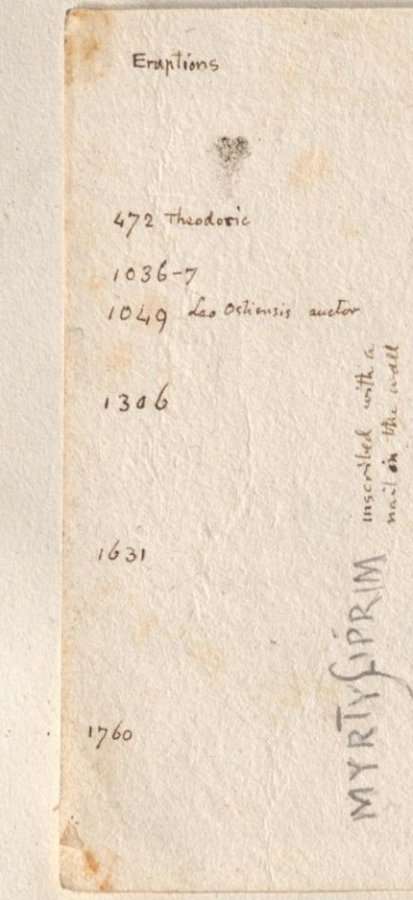 Eruptions
472 Theodoric
1036-7
1049 Leo Ostiensis auctor
1306
1631
1760
inscribed with a
nail on the wall